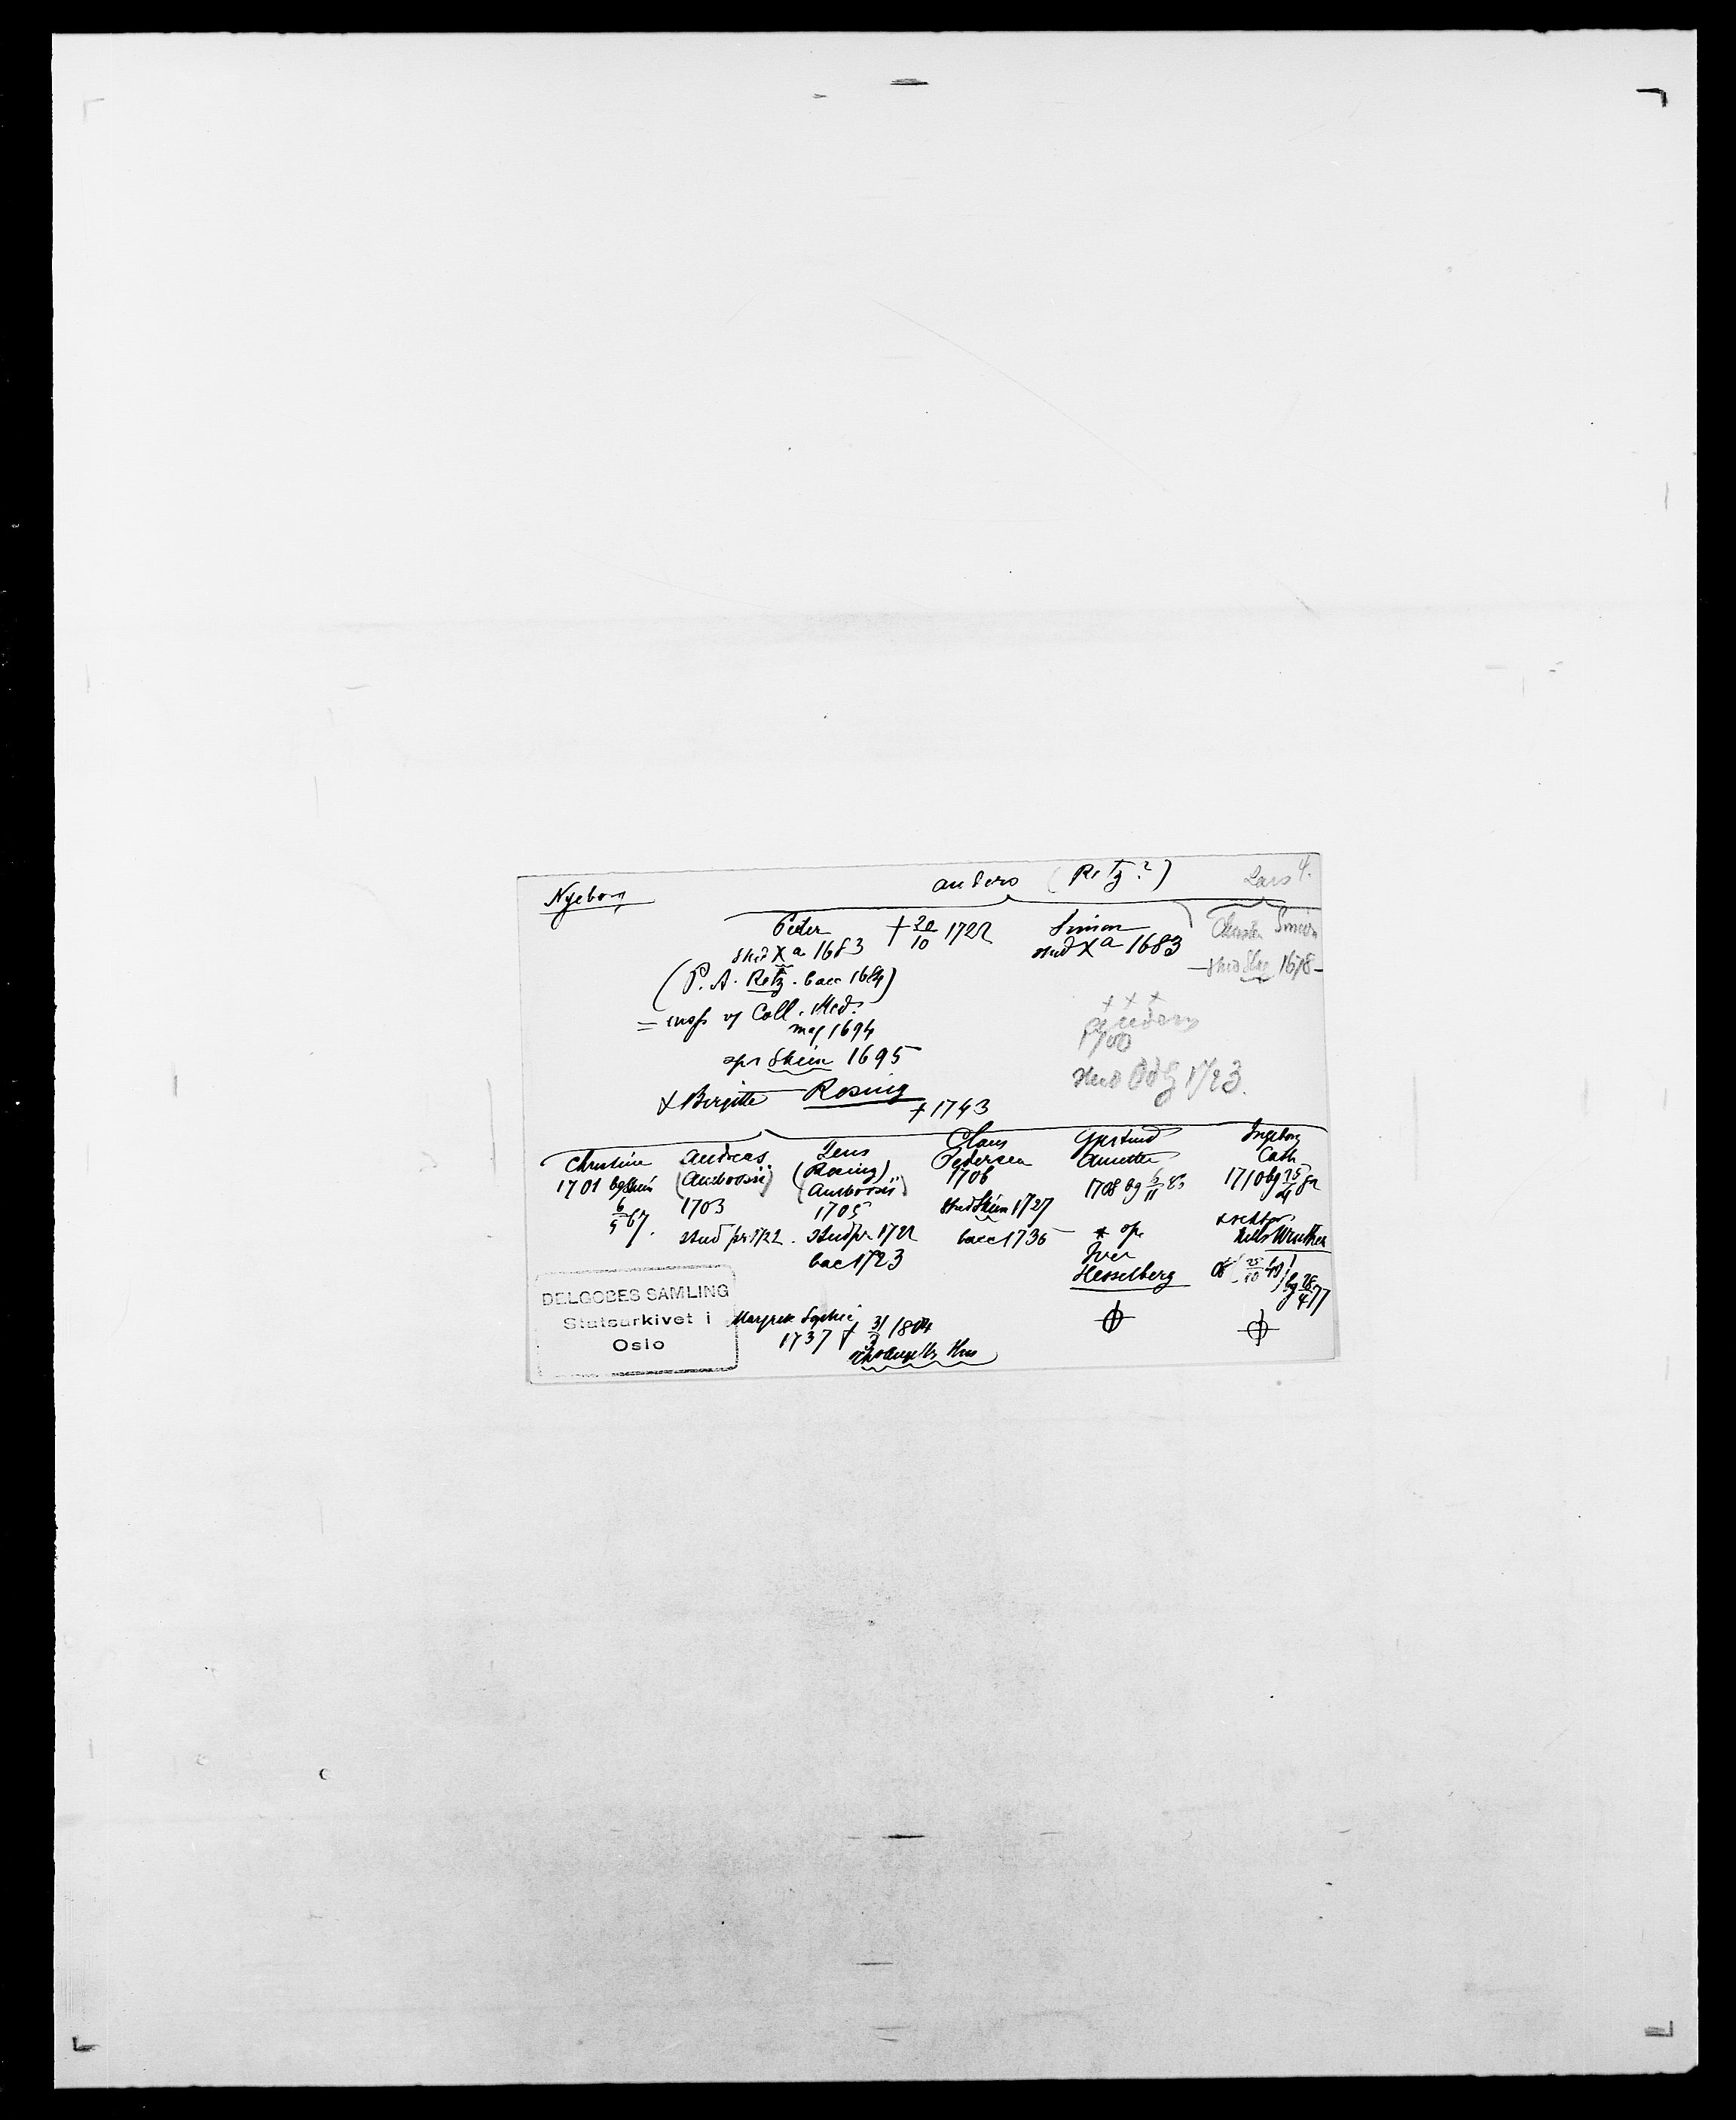 Nyborg
Anders (Retz?)
Lars 4.
Peter † 20/10 1722
stud Xa 1683
(P. A. Retz. bacc 1684)
= insp v Coll. Med.
mag 1694
spr Skien 1695
x Birgitte Rosing † 1743
Simon
stud Xa 1683
Simon
1678
x x x
1700
stud 1723.
Christine
1701 bg Skien
6/5 67.
Andreas
1703
stud pr 1722.
Jens
(Rosing)
1705
stud pr 1722
bac 1723
Claus
Pedersen
1706
stud Skien 1727
bacc 1736
Gjertrud
Annette
1708 bg 11
x sp.
Iver
Hesselberg
Ingeborg
Cath
1710 bg
x rektor
Niels Wruther
bg 28/4 77
DELGOBES SAMLING
Statsarkivet i
Oslo
Margrete Sophie
1737 † 31/3 1804